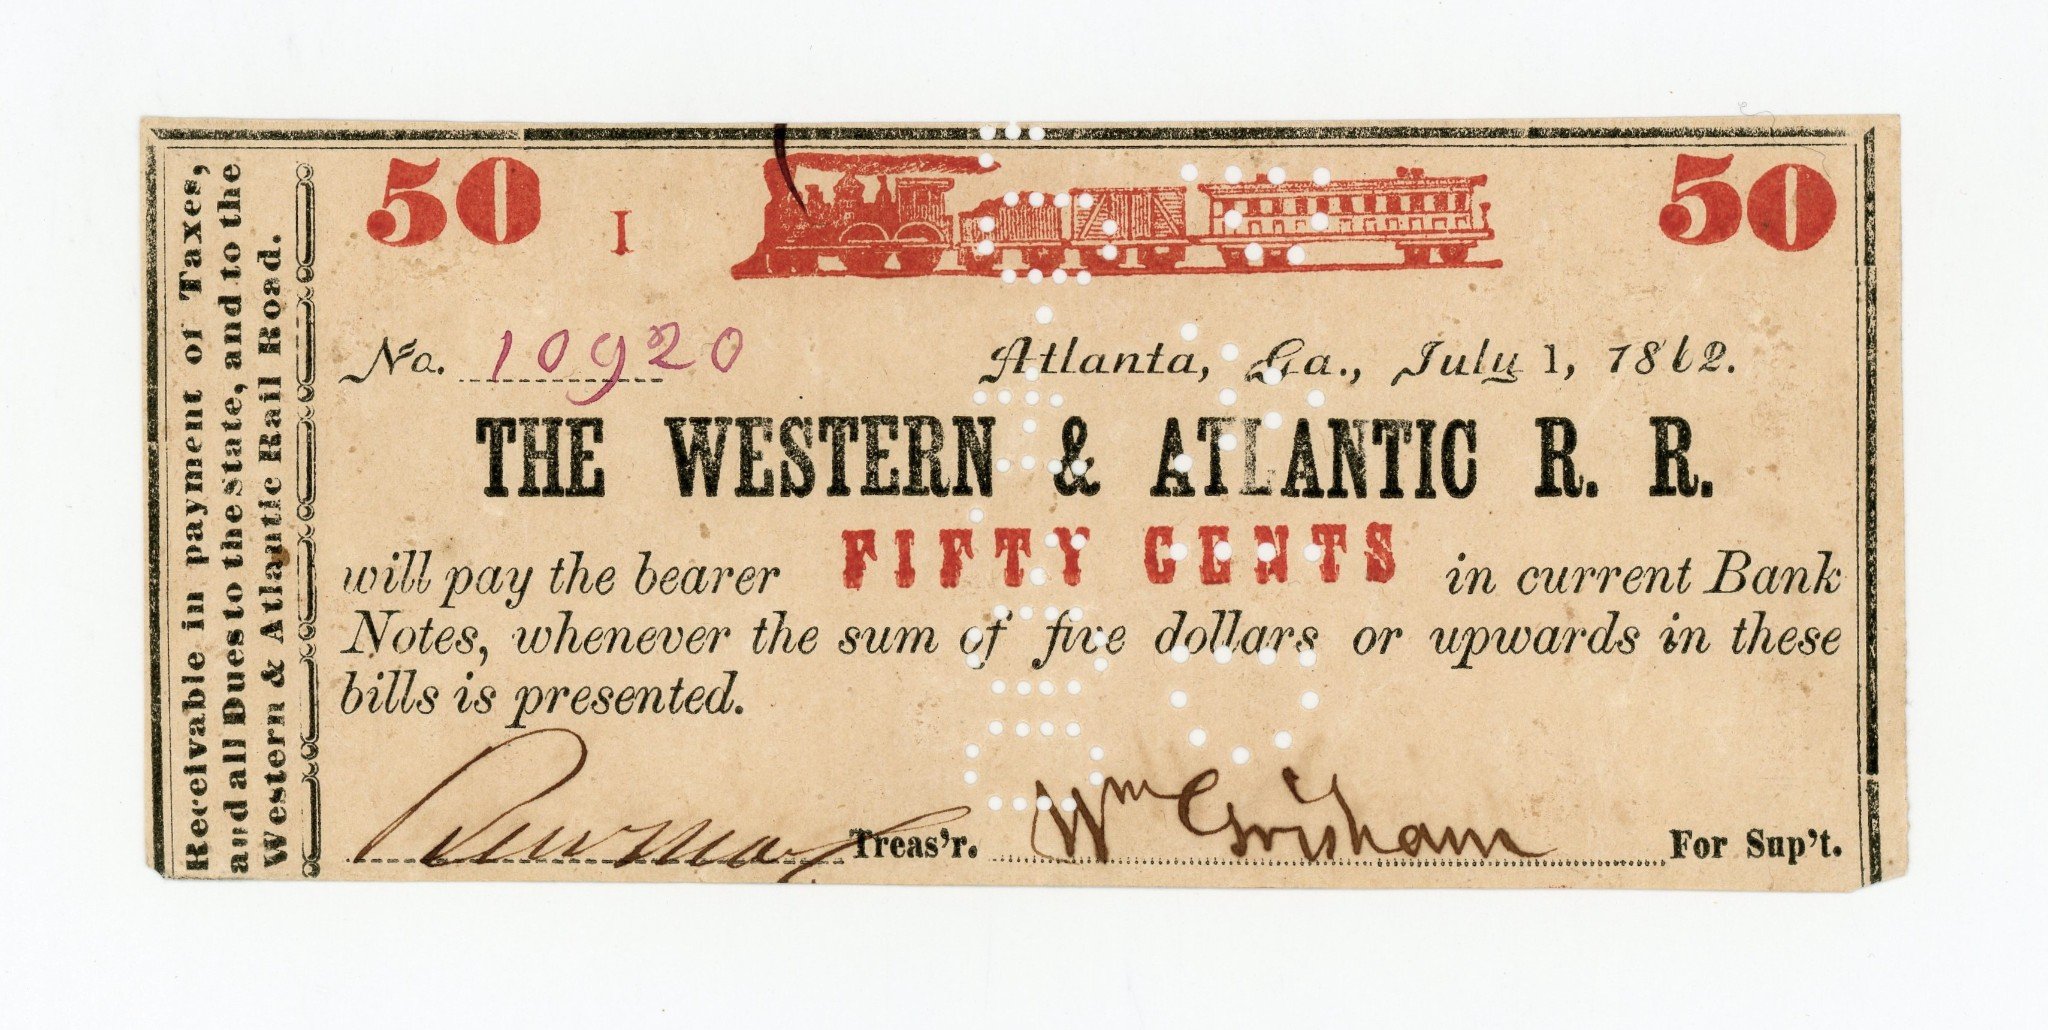 Receivable in payment of Taxes,
and all Dues to the State, and to the
Western & Atlantic Rail Road.
50 I 50
No. 10920 Atlanta, Ga., July 1, 1862.
THE WESTERN & ATLANTIC R. R.
will pay the bearer FIFTY CENTS in current Bank
Notes, whenever the sum of five dollars or upwards in these
bills is presented.
Treas'r. Wm Grisham For Sup't.